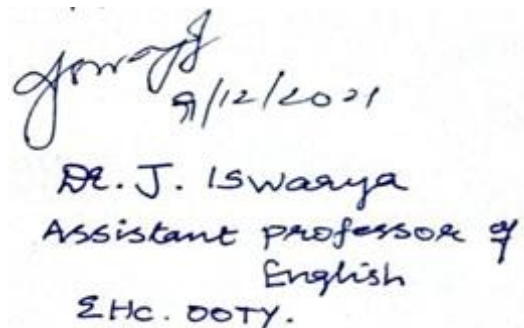 9/12/2021
Dr. J. Iswarya
Assistant professor of
English
EHC. OOTY.